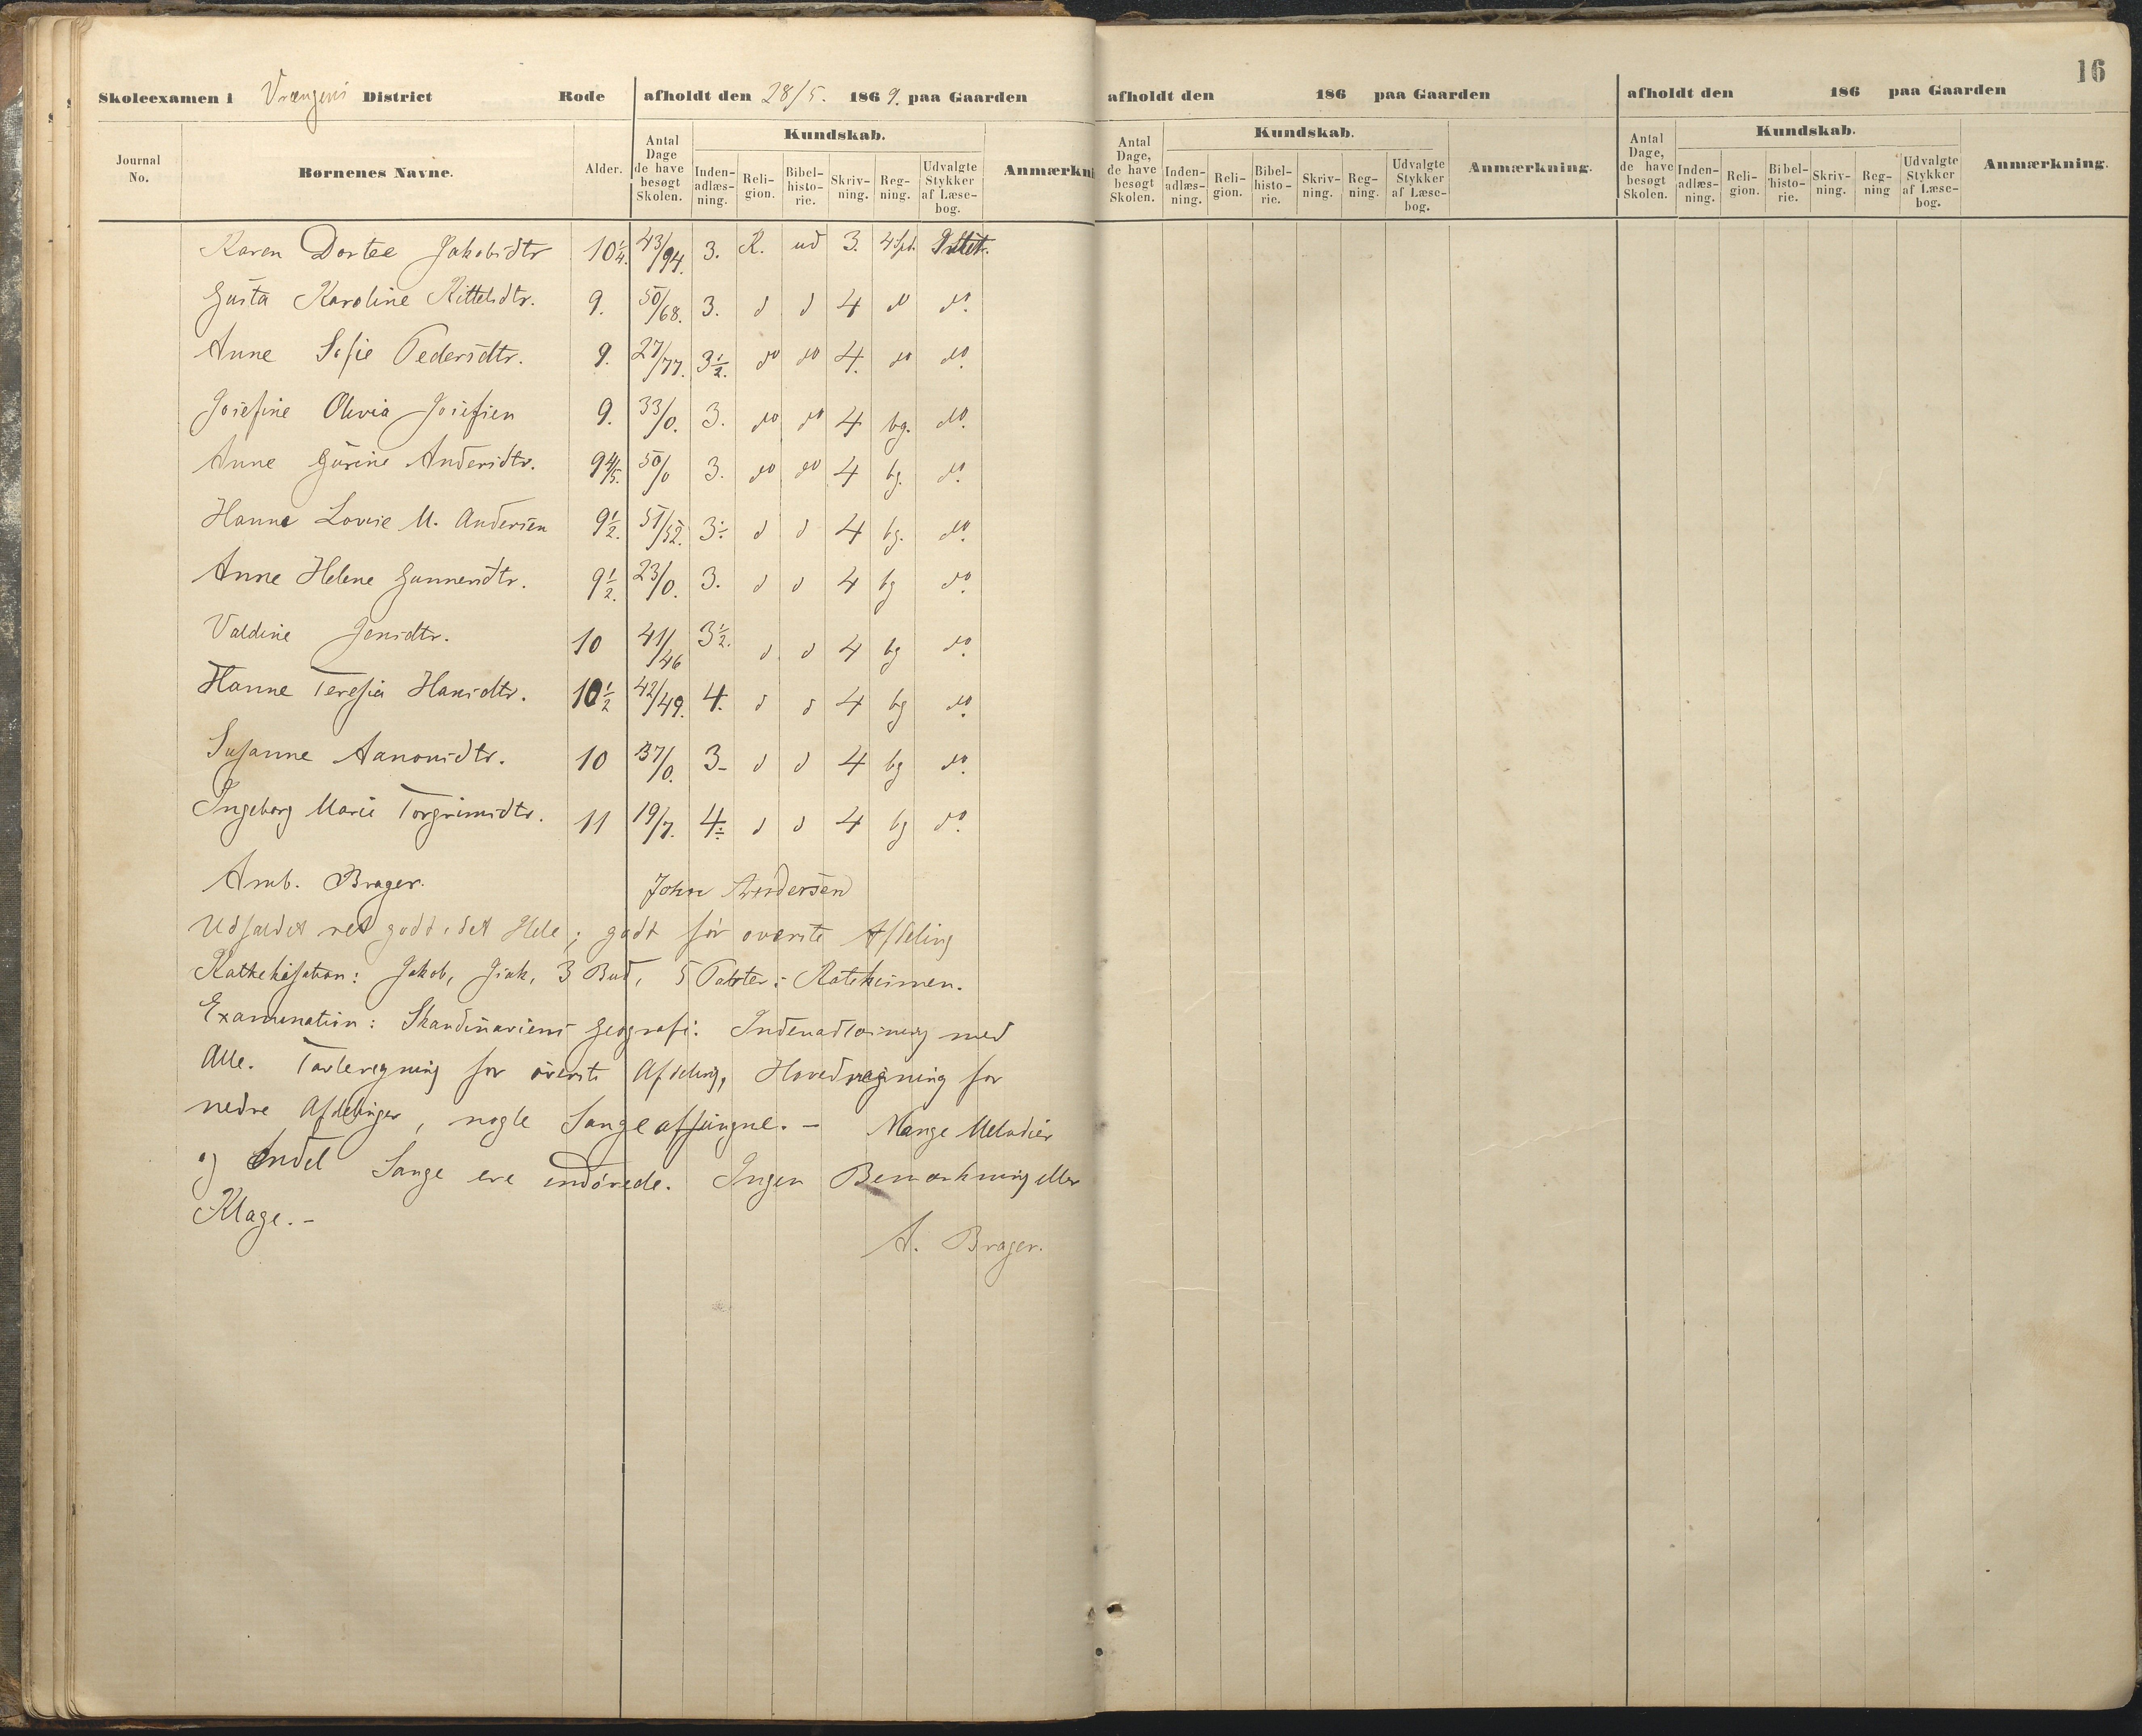 16
Skoleexamen i Vrengens District Rode afholdt den 28/5. 1869. paa Gaarden
afholdt den 186 paa Gaarden
afholdt den 186 paa Gaarden
Journal No. Børnenes Navne. Alder. Antal Dage de have besøgt Skolen. Kundskab. Inden-adlæs-ning. Reli-gion. Bibel-histo-rie. Skriv-ning. Reg-ning. Udvalgte Stykker af Læse-bog. Anmærkni
Antal Dage, de have besøgt Skolen. Kundskab. Inden-adlæs-ning. Reli-gion. Bibel-histo-rie. Skriv-ning. Reg-ning. Udvalgte Stykker af Læse-bog. Anmærkning.
Antal Dage, de have besøgt Skolen. Kundskab. Inden-adlæs-ning. Reli-gion. Bibel-histo-rie. Skriv-ning. Reg-ning Udvalgte Stykker af Læse-bog. Anmærkning.
Karen Dortee Jakobsdtr 10 1/4. 43/94. 3. R. ud 3. 4 Sp.
Gusta Karoline Kittelsdtr. 9. 50/68. 3. d d 4 do do.
Anne Sofie Pedersdtr. 9. 27/77. 3 1/2. do do 4. do do.
Josefine Olivia Josefsen 9. 33/0. 3. do do 4 bg. do.
Anne Gurine Andersdtr. 9 4/5. 50/0 3. do do 4 bg. do.
Hanne Lovise M. Andersen 9 1/2. 51/52. 3 ÷ d d 4 bg. do.
Anne Helene Gunnersdtr. 9 1/2. 23/0. 3. d d 4 bg do.
Valdine Jensdtr. 10 41/46 3 1/2. d d 4 bg do.
Hanne Teresia Hansdtr. 10 1/2 42/49. 4. d d 4 bg do.
Susanne Aanonsdtr. 10 37/0. 3- d d 4 bg do.
Ingeborg Marie Torgrimsdtr. 11 19/7. 4 ÷ d d 4 bg do.
Amb. Brager. John Andersen
Udfaldet ret godt i det Hele; godt for øverste Afdeling
Kathekisation: Jakob, 3 Bud, 5 Parter i Katekismen.
Examination: Skandinaviens Geografi. Indenadlæsning med
Alle. Tavleregning for øverste Afdeling, Hovedregning for
nedre Afdelinger, nogle Sange afsungne. – Mange Melodier
og Endel Sange ere indøvede. Ingen Bemærkning eller
Klage. –
A. Brager.